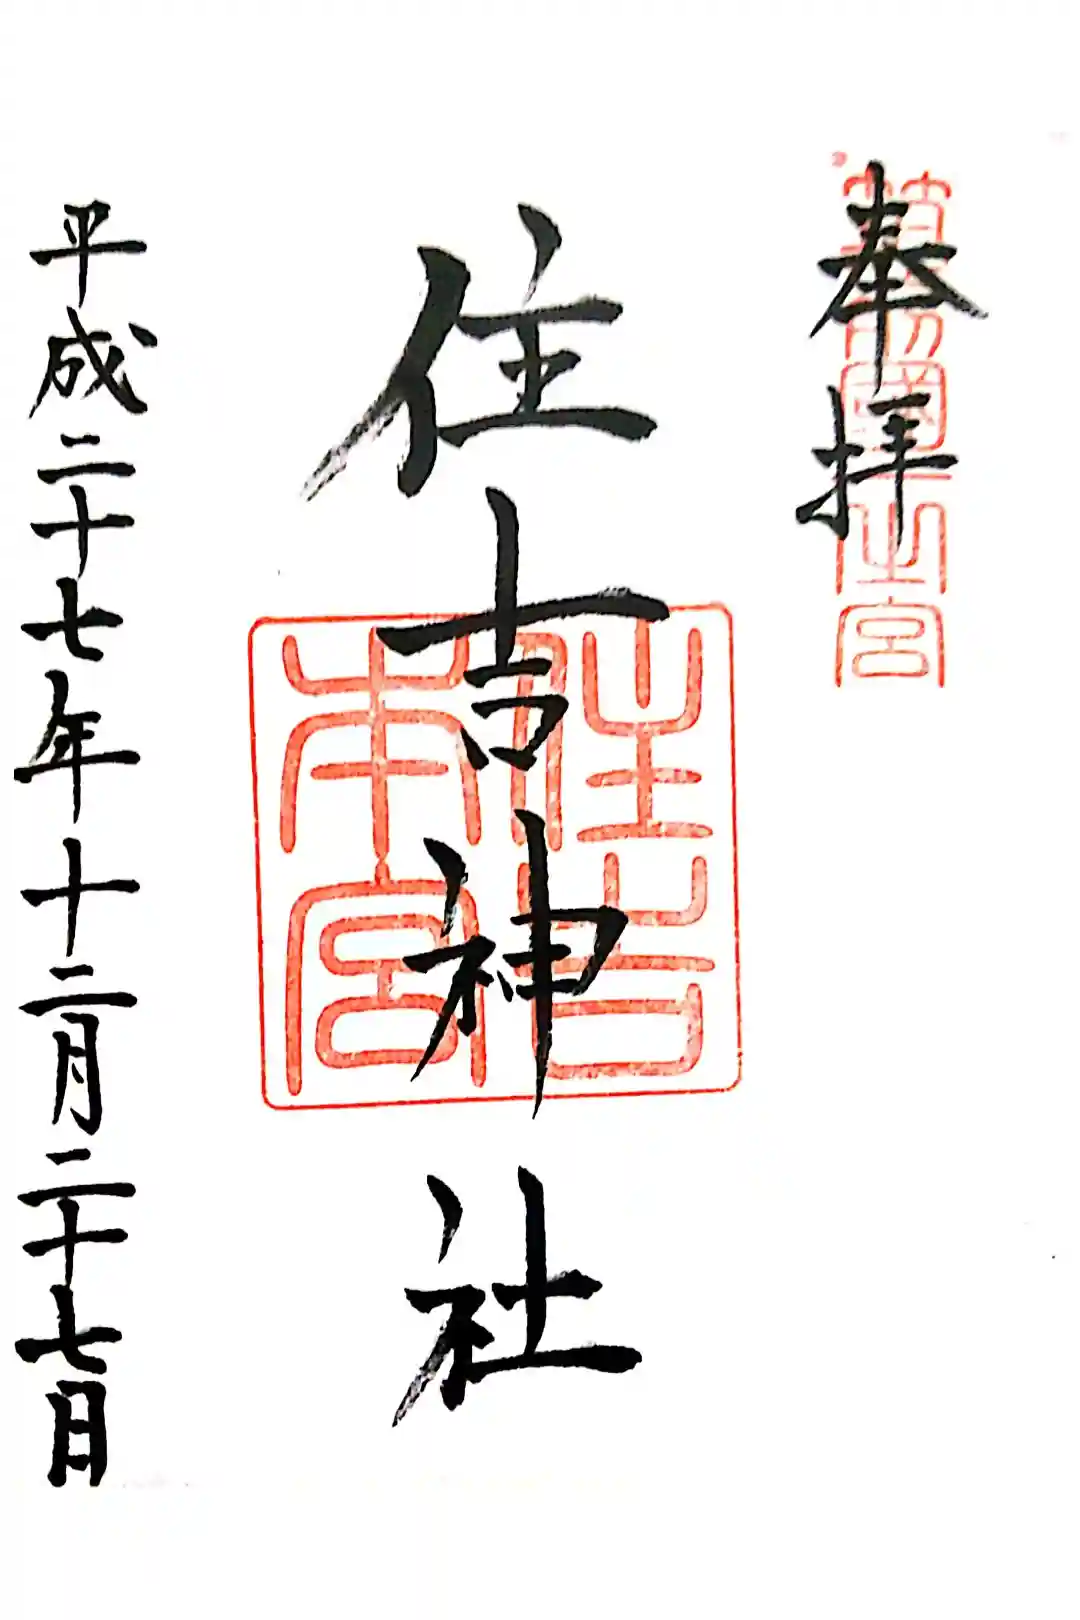 奉拝
筑前國一之宮
住吉神社
住吉
本宮
平成二十七年十二月二十七日